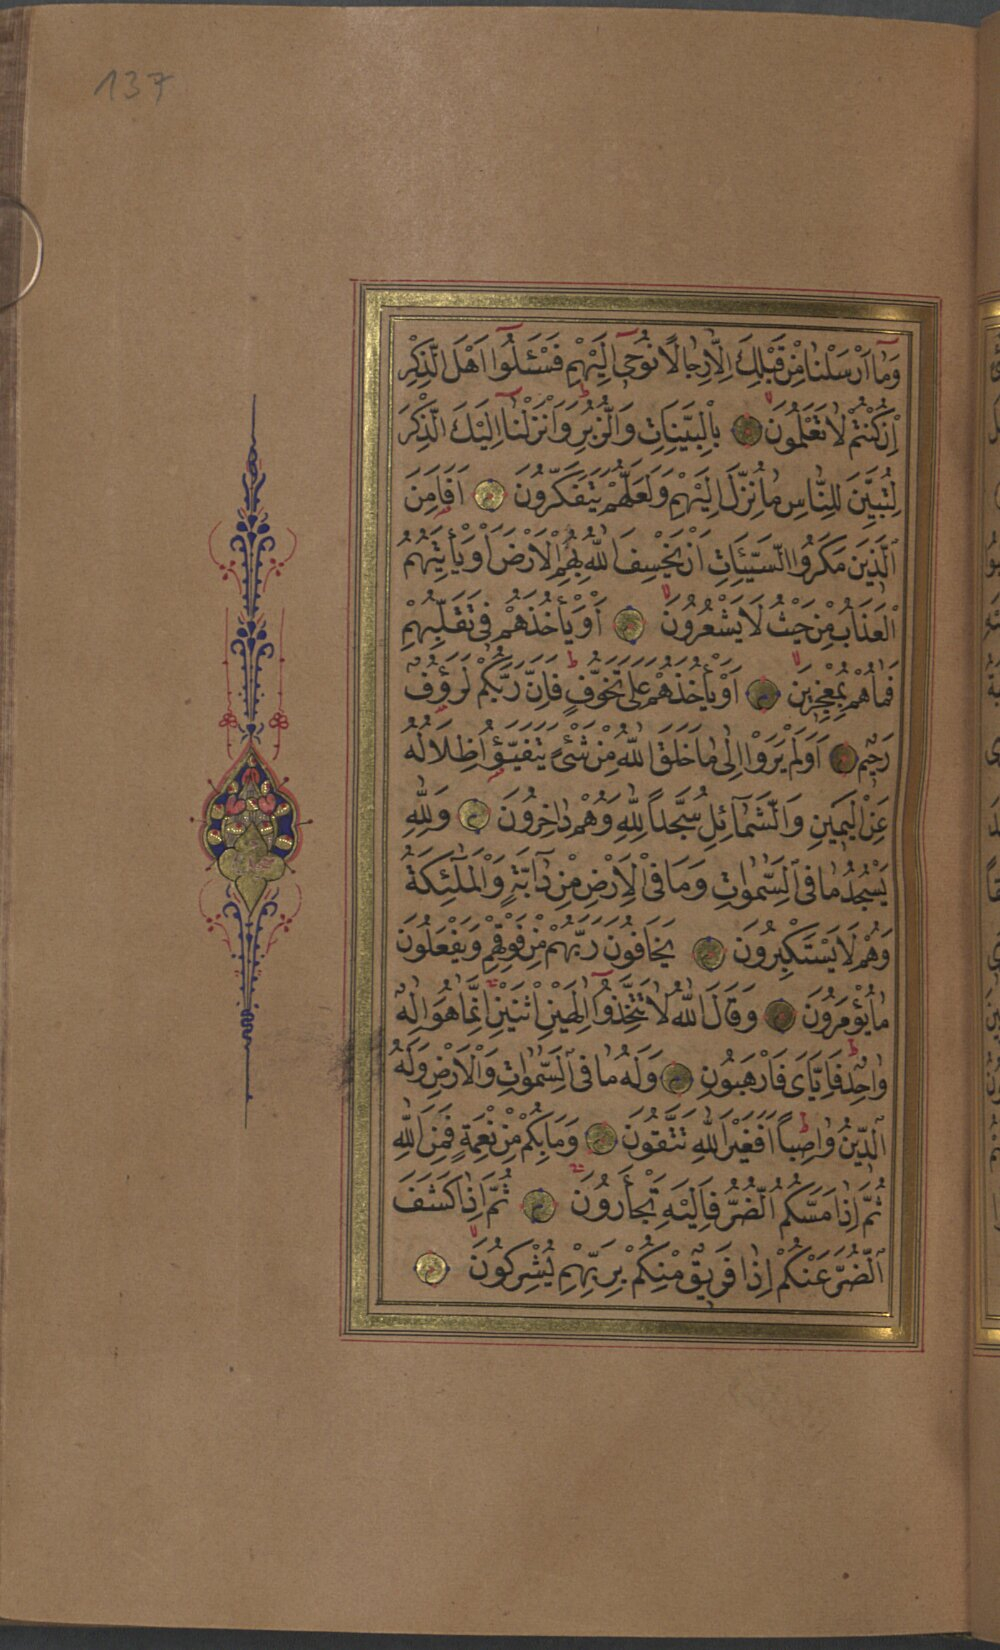 137
وَمَٓا اَرْسَلْنَا مِنْ قَبْلِكَ اِلَّا رِجَالًا نُوحٖٓى اِلَيْهِمْ فَسْـَٔلُٓوا اَهْلَ الذِّكْرِ
اِنْ كُنْتُمْ لَا تَعْلَمُونَ بِالْبَيِّنَاتِ وَالزُّبُرِ وَاَنْزَلْنَٓا اِلَيْكَ الذِّكْرَ
لِتُبَيِّنَ لِلنَّاسِ مَا نُزِّلَ اِلَيْهِمْ وَلَعَلَّهُمْ يَتَفَكَّرُونَ اَفَاَمِنَ
الَّذٖينَ مَكَرُوا السَّيِّئَاتِ اَنْ يَخْسِفَ اللّٰهُ بِهِمُ الْاَرْضَ اَوْ يَأْتِيَهُمُ
الْعَذَابُ مِنْ حَيْثُ لَا يَشْعُرُونَ اَوْ يَأْخُذَهُمْ فٖى تَقَلُّبِهِمْ
فَمَا هُمْ بِمُعْجِزٖينَ اَوْ يَأْخُذَهُمْ عَلٰى تَخَوُّفٍ فَاِنَّ رَبَّكُمْ لَرَؤُفٌ
رَحٖيمٌ اَوَلَمْ يَرَوْا اِلٰى مَا خَلَقَ اللّٰهُ مِنْ شَیْءٍ يَتَفَيَّؤُا ظِلَالُهُ
عَنِ الْيَمٖينِ وَالشَّمَٓائِلِ سُجَّدًا لِلّٰهِ وَهُمْ دَاخِرُونَ وَلِلّٰهِ
يَسْجُدُ مَا فِى السَّمٰوَاتِ وَمَا فِى الْاَرْضِ مِنْ دَٓابَّةٍ وَالْمَلٰٓئِكَةُ
وَهُمْ لَا يَسْتَكْبِرُونَ يَخَافُونَ رَبَّهُمْ مِنْ فَوْقِهِمْ وَيَفْعَلُونَ
مَا يُؤْمَرُونَ وَقَالَ اللّٰهُ لَا تَتَّخِذُٓوا اِلٰهَيْنِ اثْنَيْنِ اِنَّمَا هُوَ اِلٰهٌ
وَاحِدٌ فَاِيَّاىَ فَارْهَبُونِ وَلَهُ مَا فِى السَّمٰوَاتِ وَالْاَرْضِ وَلَهُ
الدّٖينُ وَاصِبًا اَفَغَيْرَ اللّٰهِ تَتَّقُونَ وَمَا بِكُمْ مِنْ نِعْمَةٍ فَمِنَ اللّٰهِ
ثُمَّ اِذَا مَسَّكُمُ الضُّرُّ فَاِلَيْهِ تَجْأَرُونَ ثُمَّ اِذَا كَشَفَ
الضُّرَّ عَنْكُمْ اِذَا فَرٖيقٌ مِنْكُمْ بِرَبِّهِمْ يُشْرِكُونَ